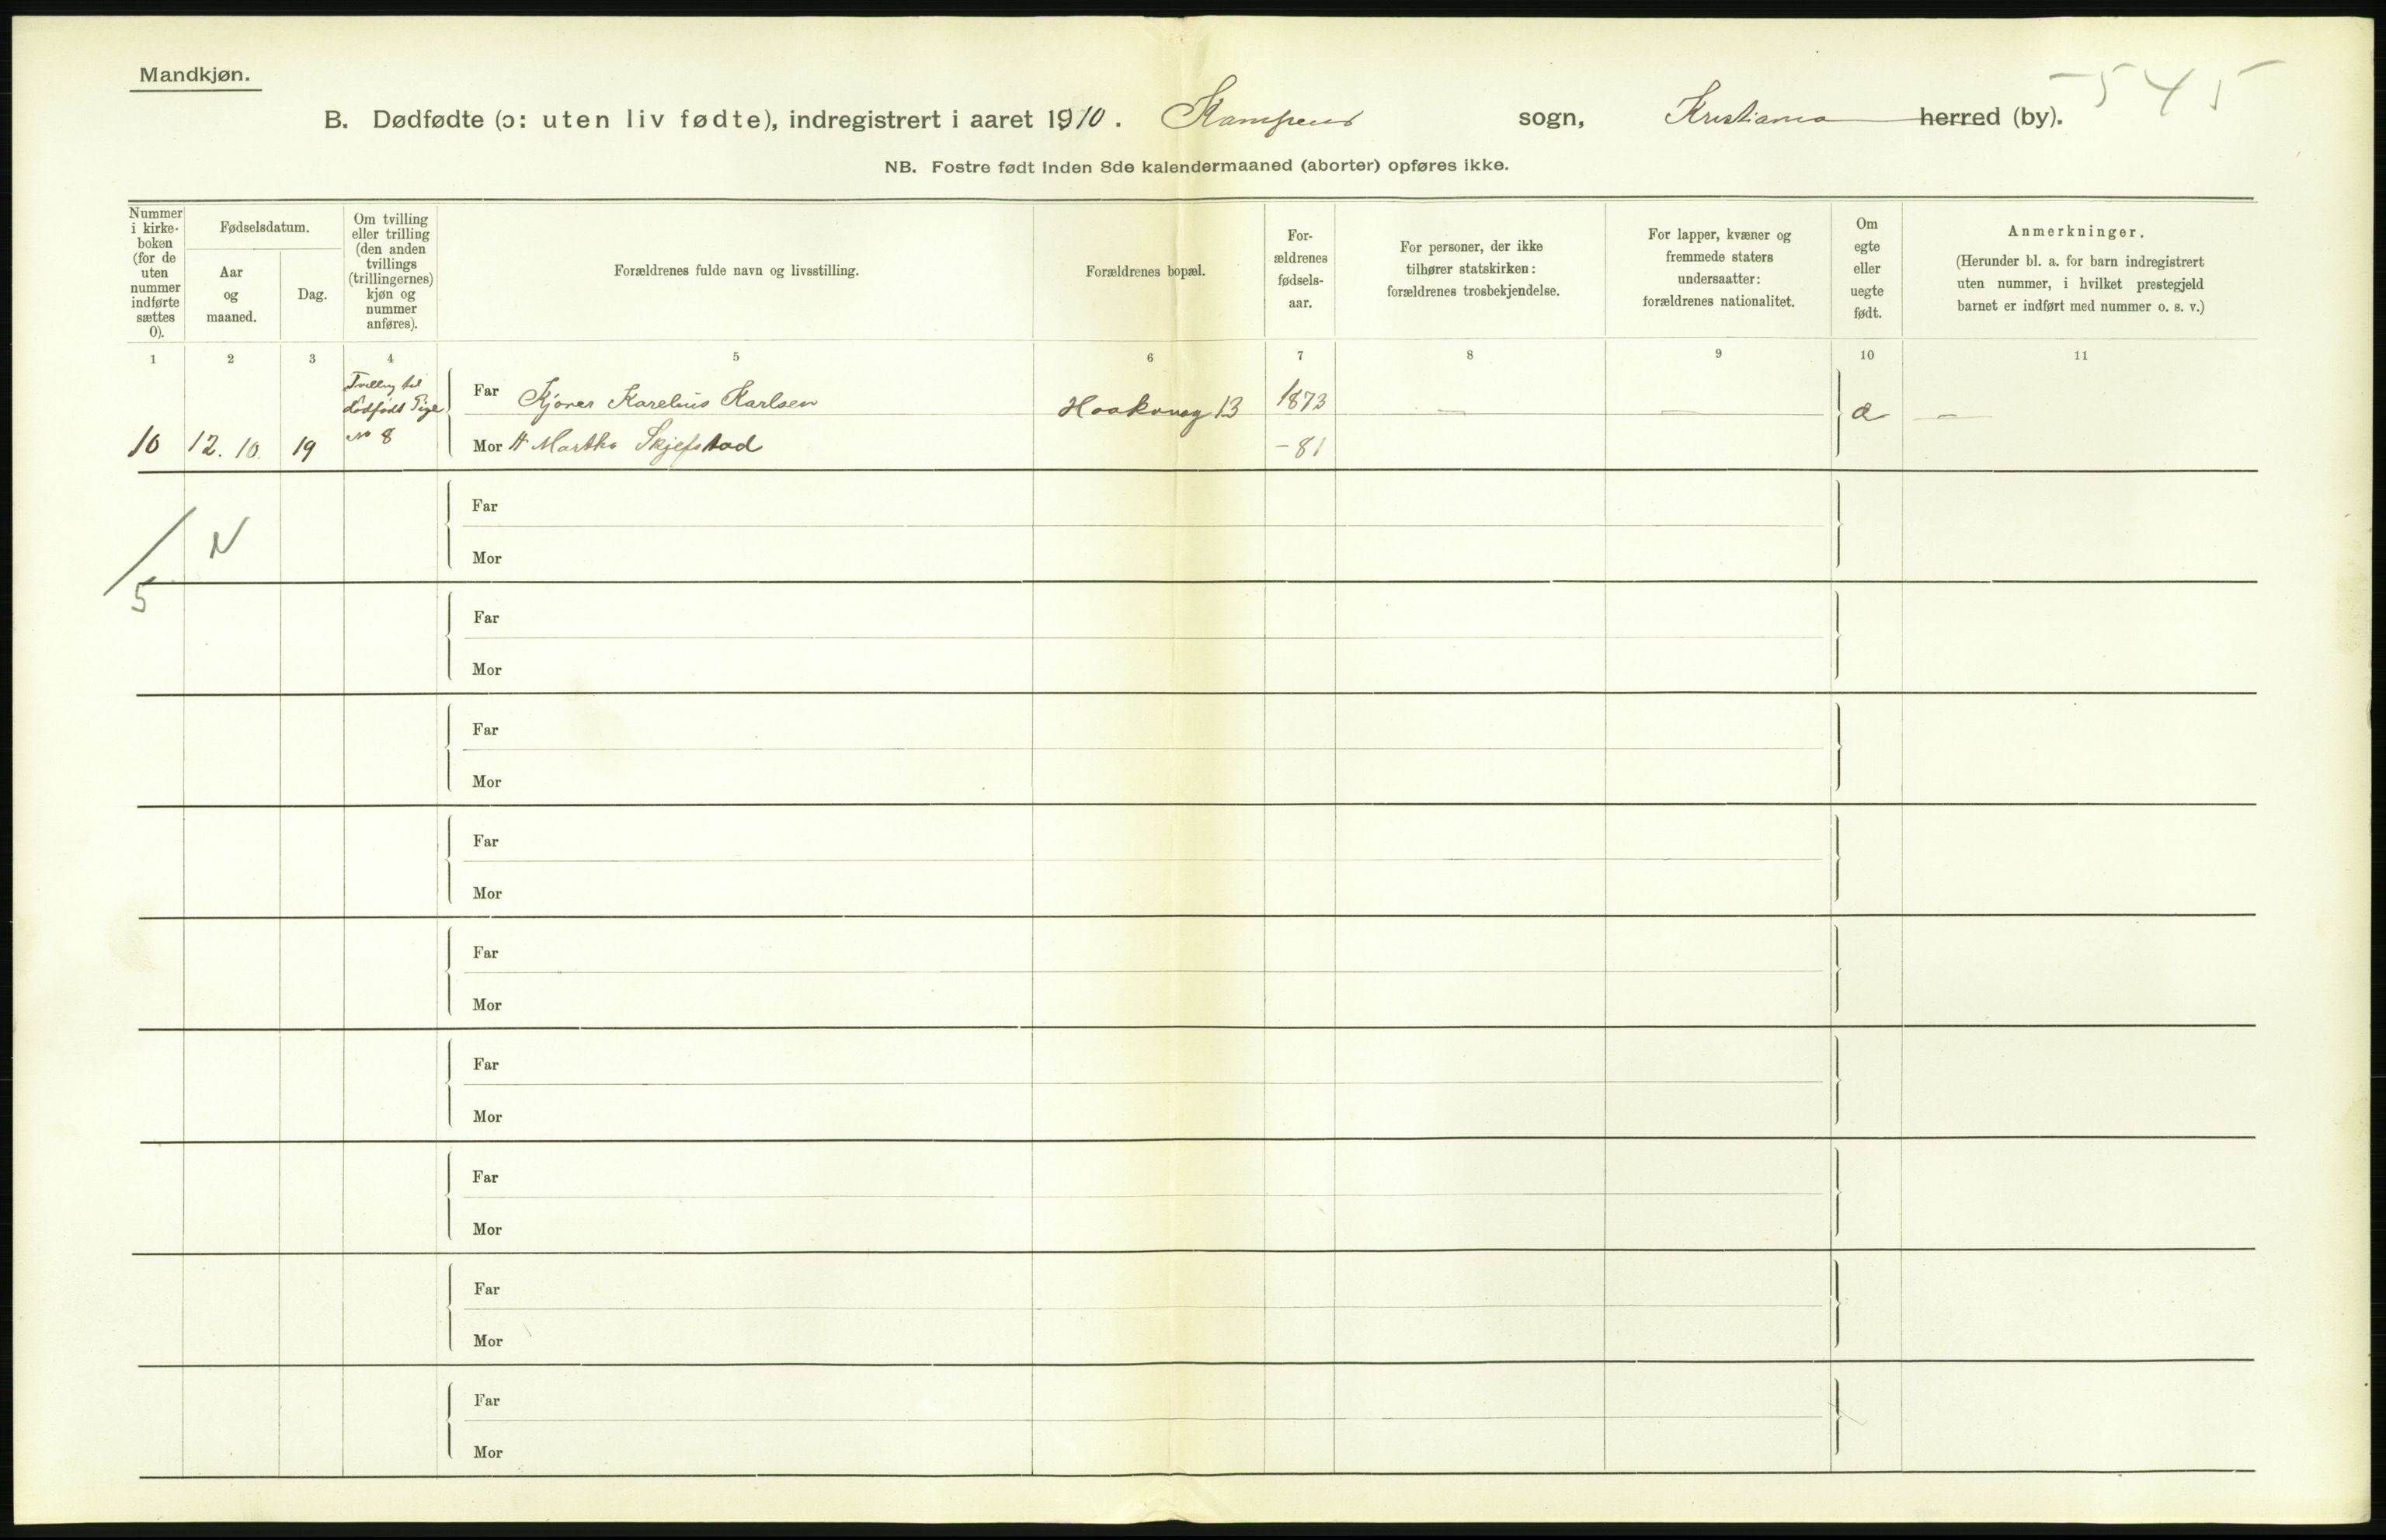 Mandkjøn.
545
B. Dødfødte (ɔ: uten liv fødte), indregistrert i aaret 1910. Kampens sogn, Kristiania herred (by).
NB. Fostre født inden 8de kalendermaaned (aborter) opføres ikke.
Nummer
i kirke-
boken
(for de
uten
nummer
indførte
sættes
0).
Fødselsdatum.
Aar
og
maaned.
Dag.
Om tvilling
eller trilling
(den anden
tvillings
(trillingernes)
kjøn og
nummer
anføres).
Forældrenes fulde navn og livsstilling.
Forældrenes bopæl.
For-
ældrenes
fødsels-
aar.
For personer, der ikke
tilhører statskirken:
forældrenes trosbekjendelse.
For lapper, kvæner og
fremmede staters
undersaatter:
forældrenes nationalitet.
Om
egte
eller
uegte
født.
Anmerkninger.
(Herunder bl. a. for barn indregistrert
uten nummer, i hvilket prestegjeld
barnet er indført med nummer o. s. v.)
1 2 3 4 5 6 7 8 9 10 11
Tvilling til
dødfødt Pige
No 8
Far Karelius Karlsen
Haakonsg 13
1873
—
—
—
10 12. 10. 19
Mor Martha Skjefstad
- 81
Far
N
Mor
5
Far
Mor
Far
Mor
Far
Mor
Far
Mor
Far
Mor
Far
Mor
Far
Mor
Far
Mor